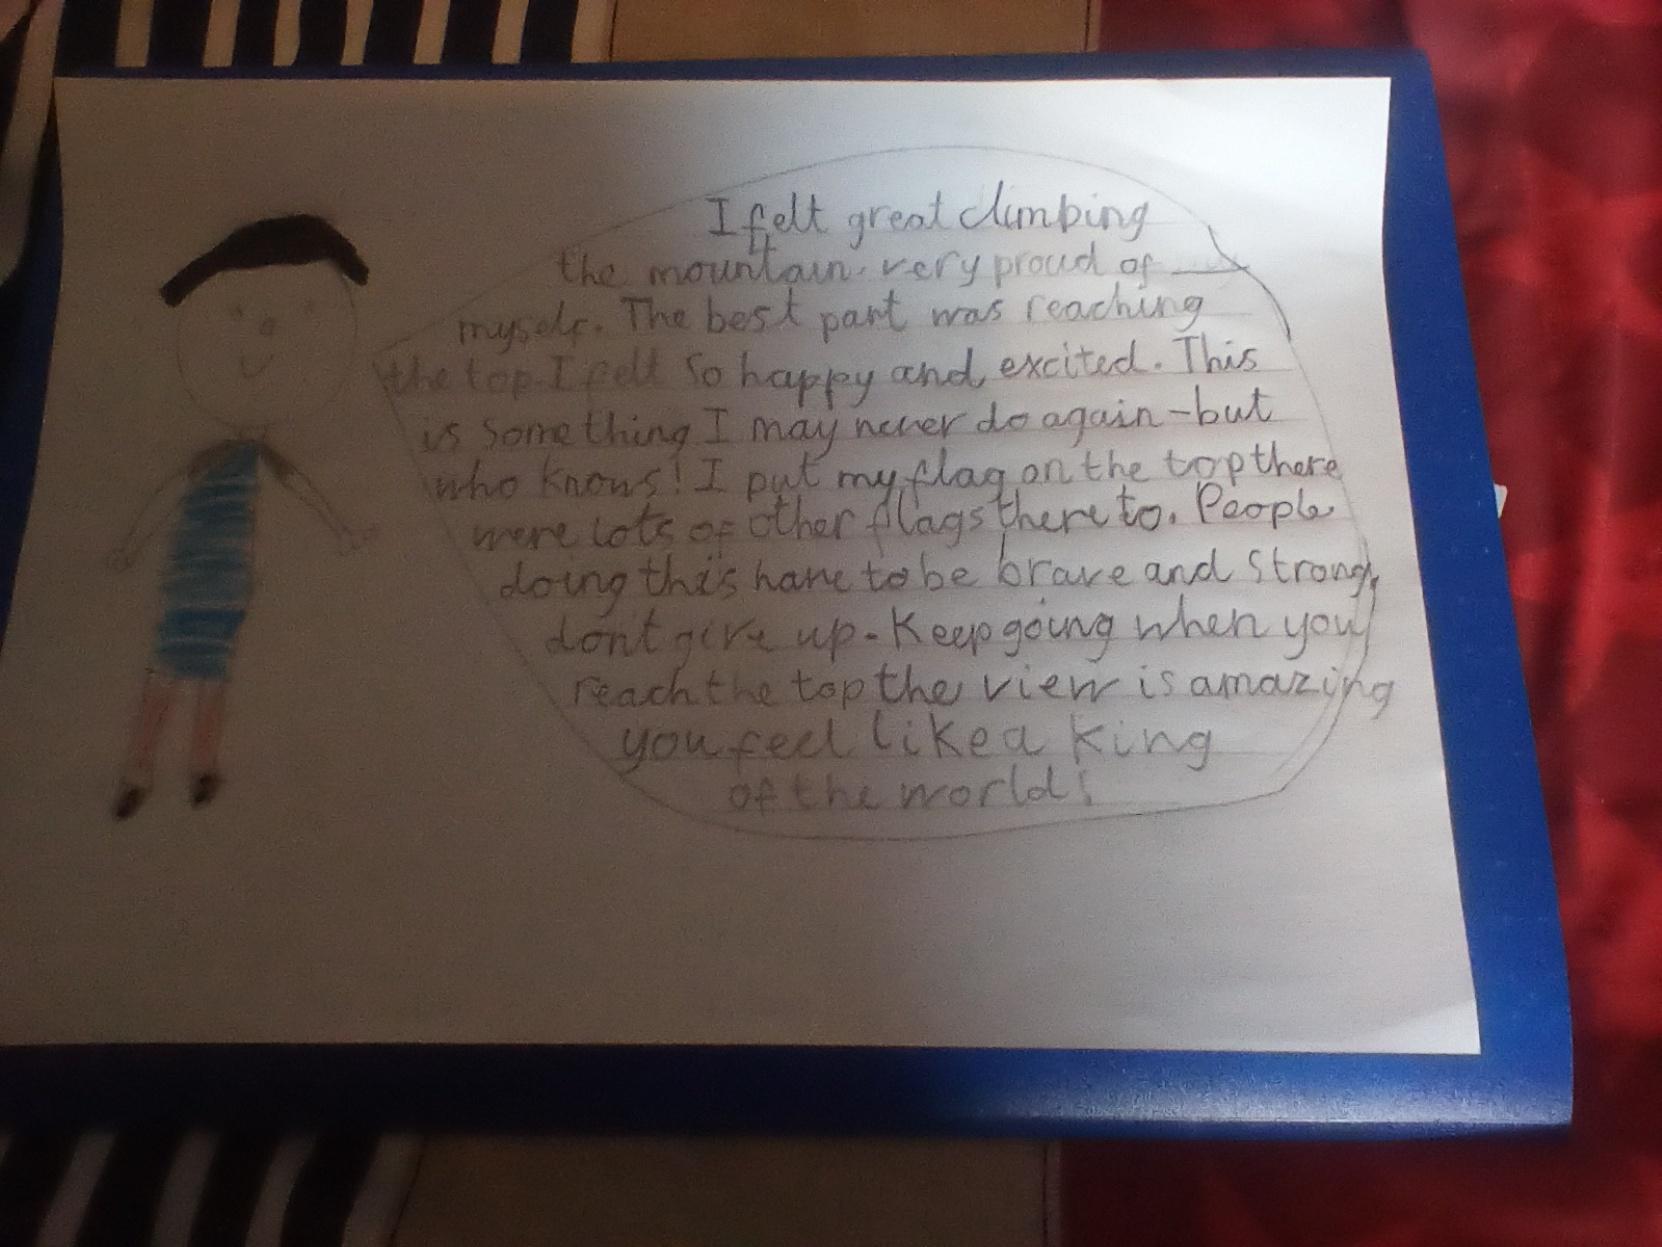 I felt great climbing
the mountain. very proud of
myself. The best part was reaching
the top. I felt so happy and excited. This
is something I may never do again - but
who knows! I put my flag on the top there
were lots of other flags there to. People
doing this have to be brave and strong,
dont give up. Keep going when you
reach the top the view is amazing
you feel like a king
of the world!